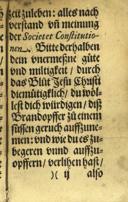 zeit zuleben: alles nach
verstand vñ meinung
der Societet Constitutio-
nen. Bitte derhalben
dein vnermeßne güte
vnd miltigkeit / durch
das Blůt Jesu Christi
diemůtigklich / du wöl-
lest dich würdigen / diß
Brandopffer zu einem
süssen geruch auffzune-
men: vnd wie du es zu-
begeren vnnd auffzu-
opffern / verlihen hast /
)( ij also